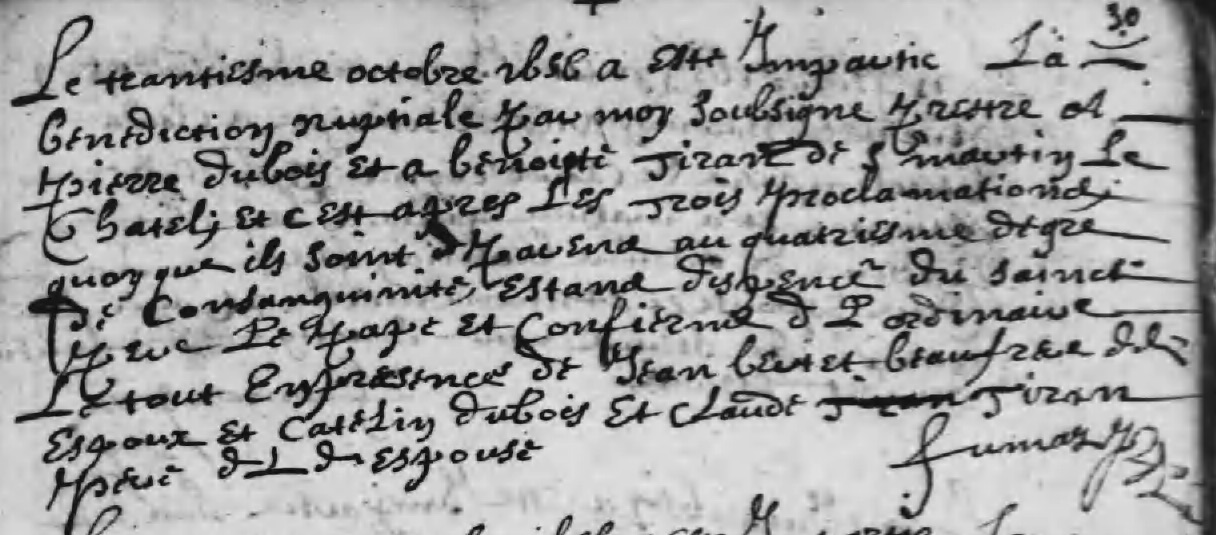 30
Le trantiesme octobre 1656 a Este Impartie La
benediction nuptiale par moy soubsigne prestre a
pierre dubois Et a benoiste Tiran de St martin Le
Chatel; Et c Est apres Les Trois proclamations
quoy que ils soint parend au quatriesme degre
de Consanguinite, Estand dispencé du sainct
pere Le pape Et confirmé d L ordinaire
Le tout En presence de Jean bertet beaufrere de
Espoux Et Catelin dubois Et claude Tiran
pere d L d Espouse
fumaz